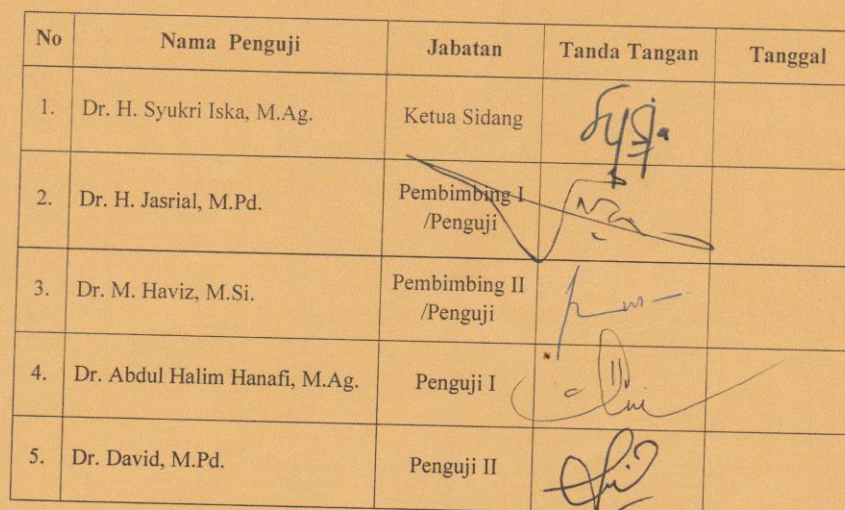 No Nama Penguji Jabatan Tanda Tangan Tanggal
1. Dr. H. Syukri Iska, M.Ag. Ketua Sidang
2. Dr. H. Jasrial, M.Pd. Pembimbing I
/Penguji
3. Dr. M. Haviz, M.Si. Pembimbing II
/Penguji
4. Dr. Abdul Halim Hanafi, M.Ag. Penguji I
5. Dr. David, M.Pd. Penguji II